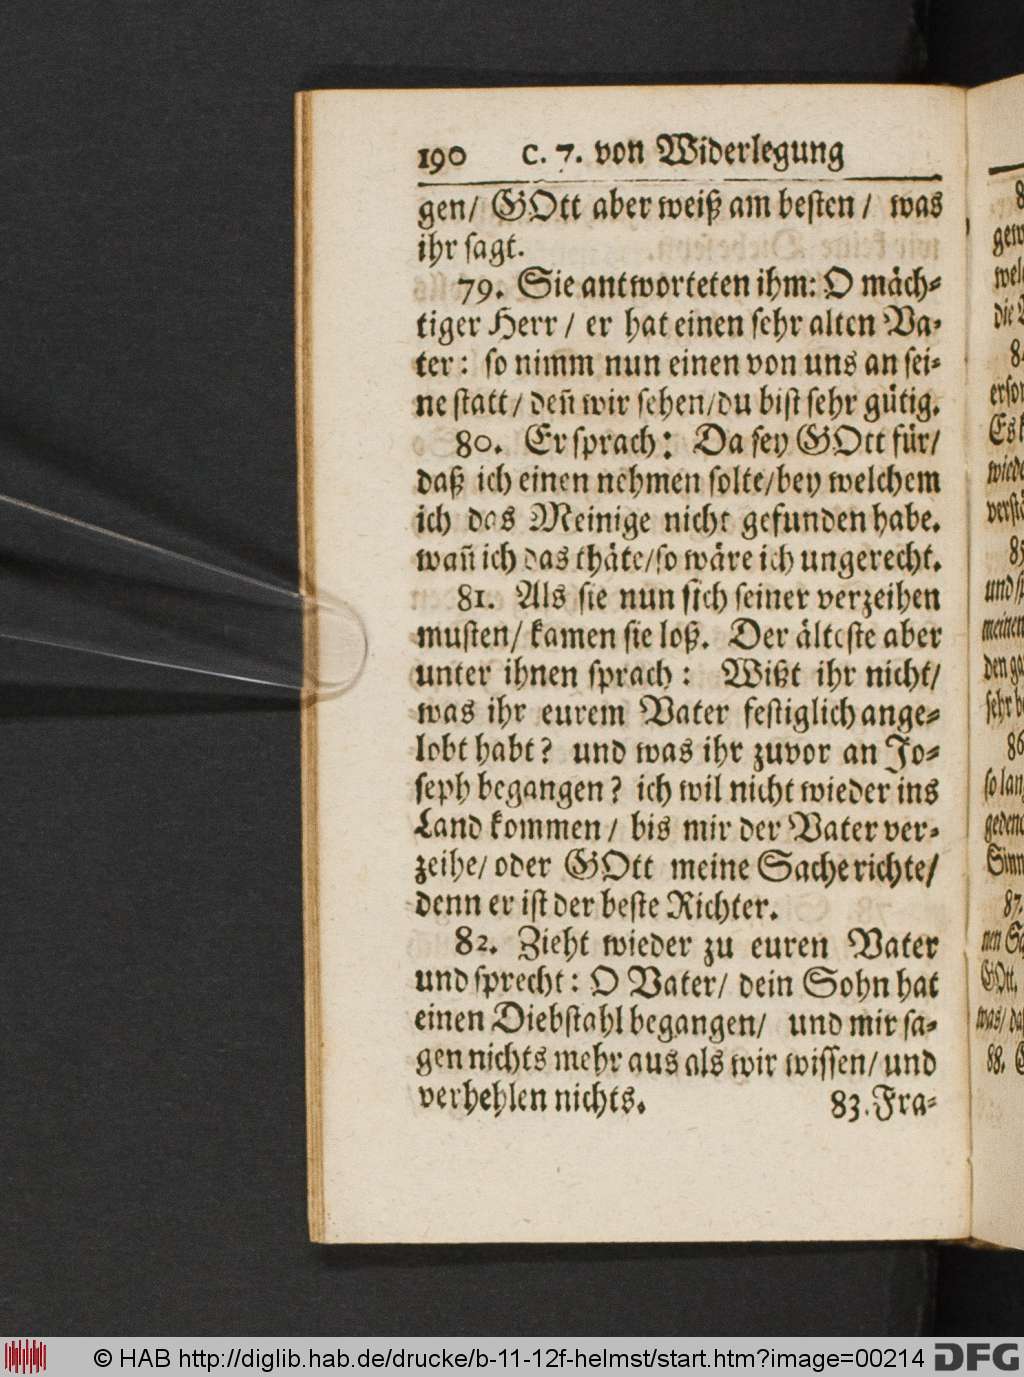 190 C. 7. von Widerlegung
gen/ GOtt aber weiß am besten/ was
ihr sagt.
79. Sie antworteten ihm: O mäch⸗
tiger Herr/ er hat einen sehr alten Va⸗
ter: so nimm nun einen von uns an sei⸗
ne statt/ deñ wir sehen/du bist sehr gütig.
80. Er sprach: Da sey GOtt für/
daß ich einen nehmen solte/bey welchem
ich das Meinige nicht gefunden habe.
wañ ich das thäte/so wäre ich ungerecht.
81. Als sie nun sich seiner verzeihen
musten/ kamen sie loß. Der älteste aber
unter ihnen sprach: Wißt ihr nicht/
was ihr eurem Vater festiglich ange⸗
lobt habt? und was ihr zuvor an Jo⸗
seph begangen? ich wil nicht wieder ins
Land kommen/ bis mir der Vater ver⸗
zeihe/ oder GOtt meine Sache richte/
denn er ist der beste Richter.
82. Zieht wieder zu euren Vater
und sprecht: O Vater/ dein Sohn hat
einen Diebstahl begangen/ und mir sa⸗
gen nichts mehr aus als wir wissen/ und
verhehlen nichts. 83. Fra⸗
© HAB http://diglib.hab.de/drucke/b-11-12f-helmst/start.htm?image=00214 DFG